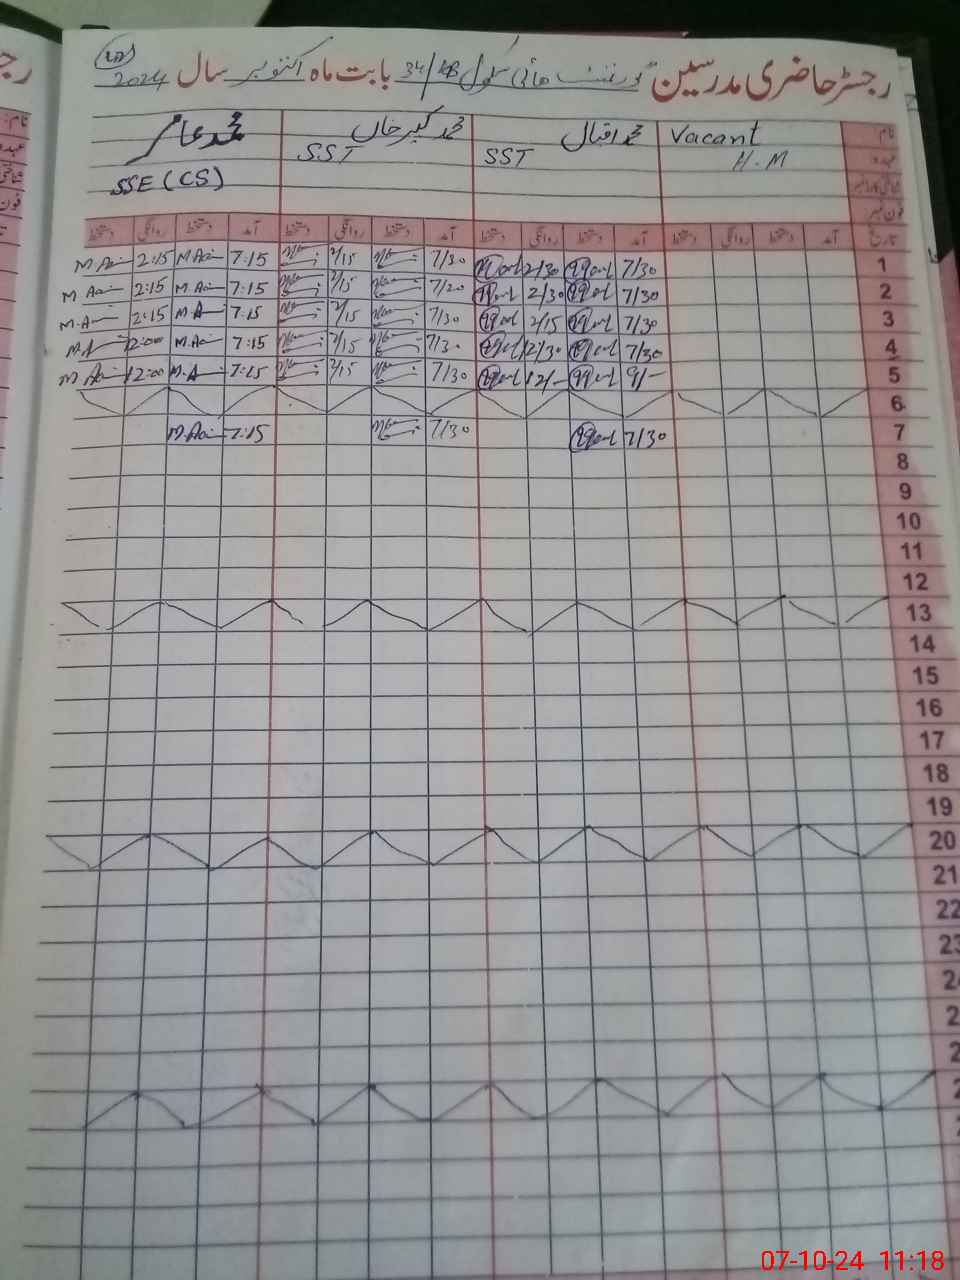 رجسٹر حاضری مدرسین گورنمنٹ ہائی سکول 34/ بابت ماہ اکتوبر سال 2024
نام: Vacant محمد اقبال محمد کبیر خاں محمد عامر
عہدہ: H.M SST SST SSE (CS)
شناختی کارڈ نمبر
فون نمبر
تاریخ آمد دستخط روانگی دستخط آمد دستخط روانگی دستخط آمد دستخط روانگی دستخط آمد دستخط روانگی دستخط
2:15 7:15 2/15 7/30 2/30 7/30 1
2:15 7:15 2/15 7/20 2/30 7/30 2
2:15 7:15 2/15 7/30 2/15 7/30 3
12:00 7:15 2/15 7/30 12/30 7/30 4
12:00 7:15 2/15 7/30 12/- 9/- 5
6
7:15 7/30 7/30 7
8
9
10
11
12
13
14
15
16
17
18
19
20
21
22
23
07-10-24 11:18